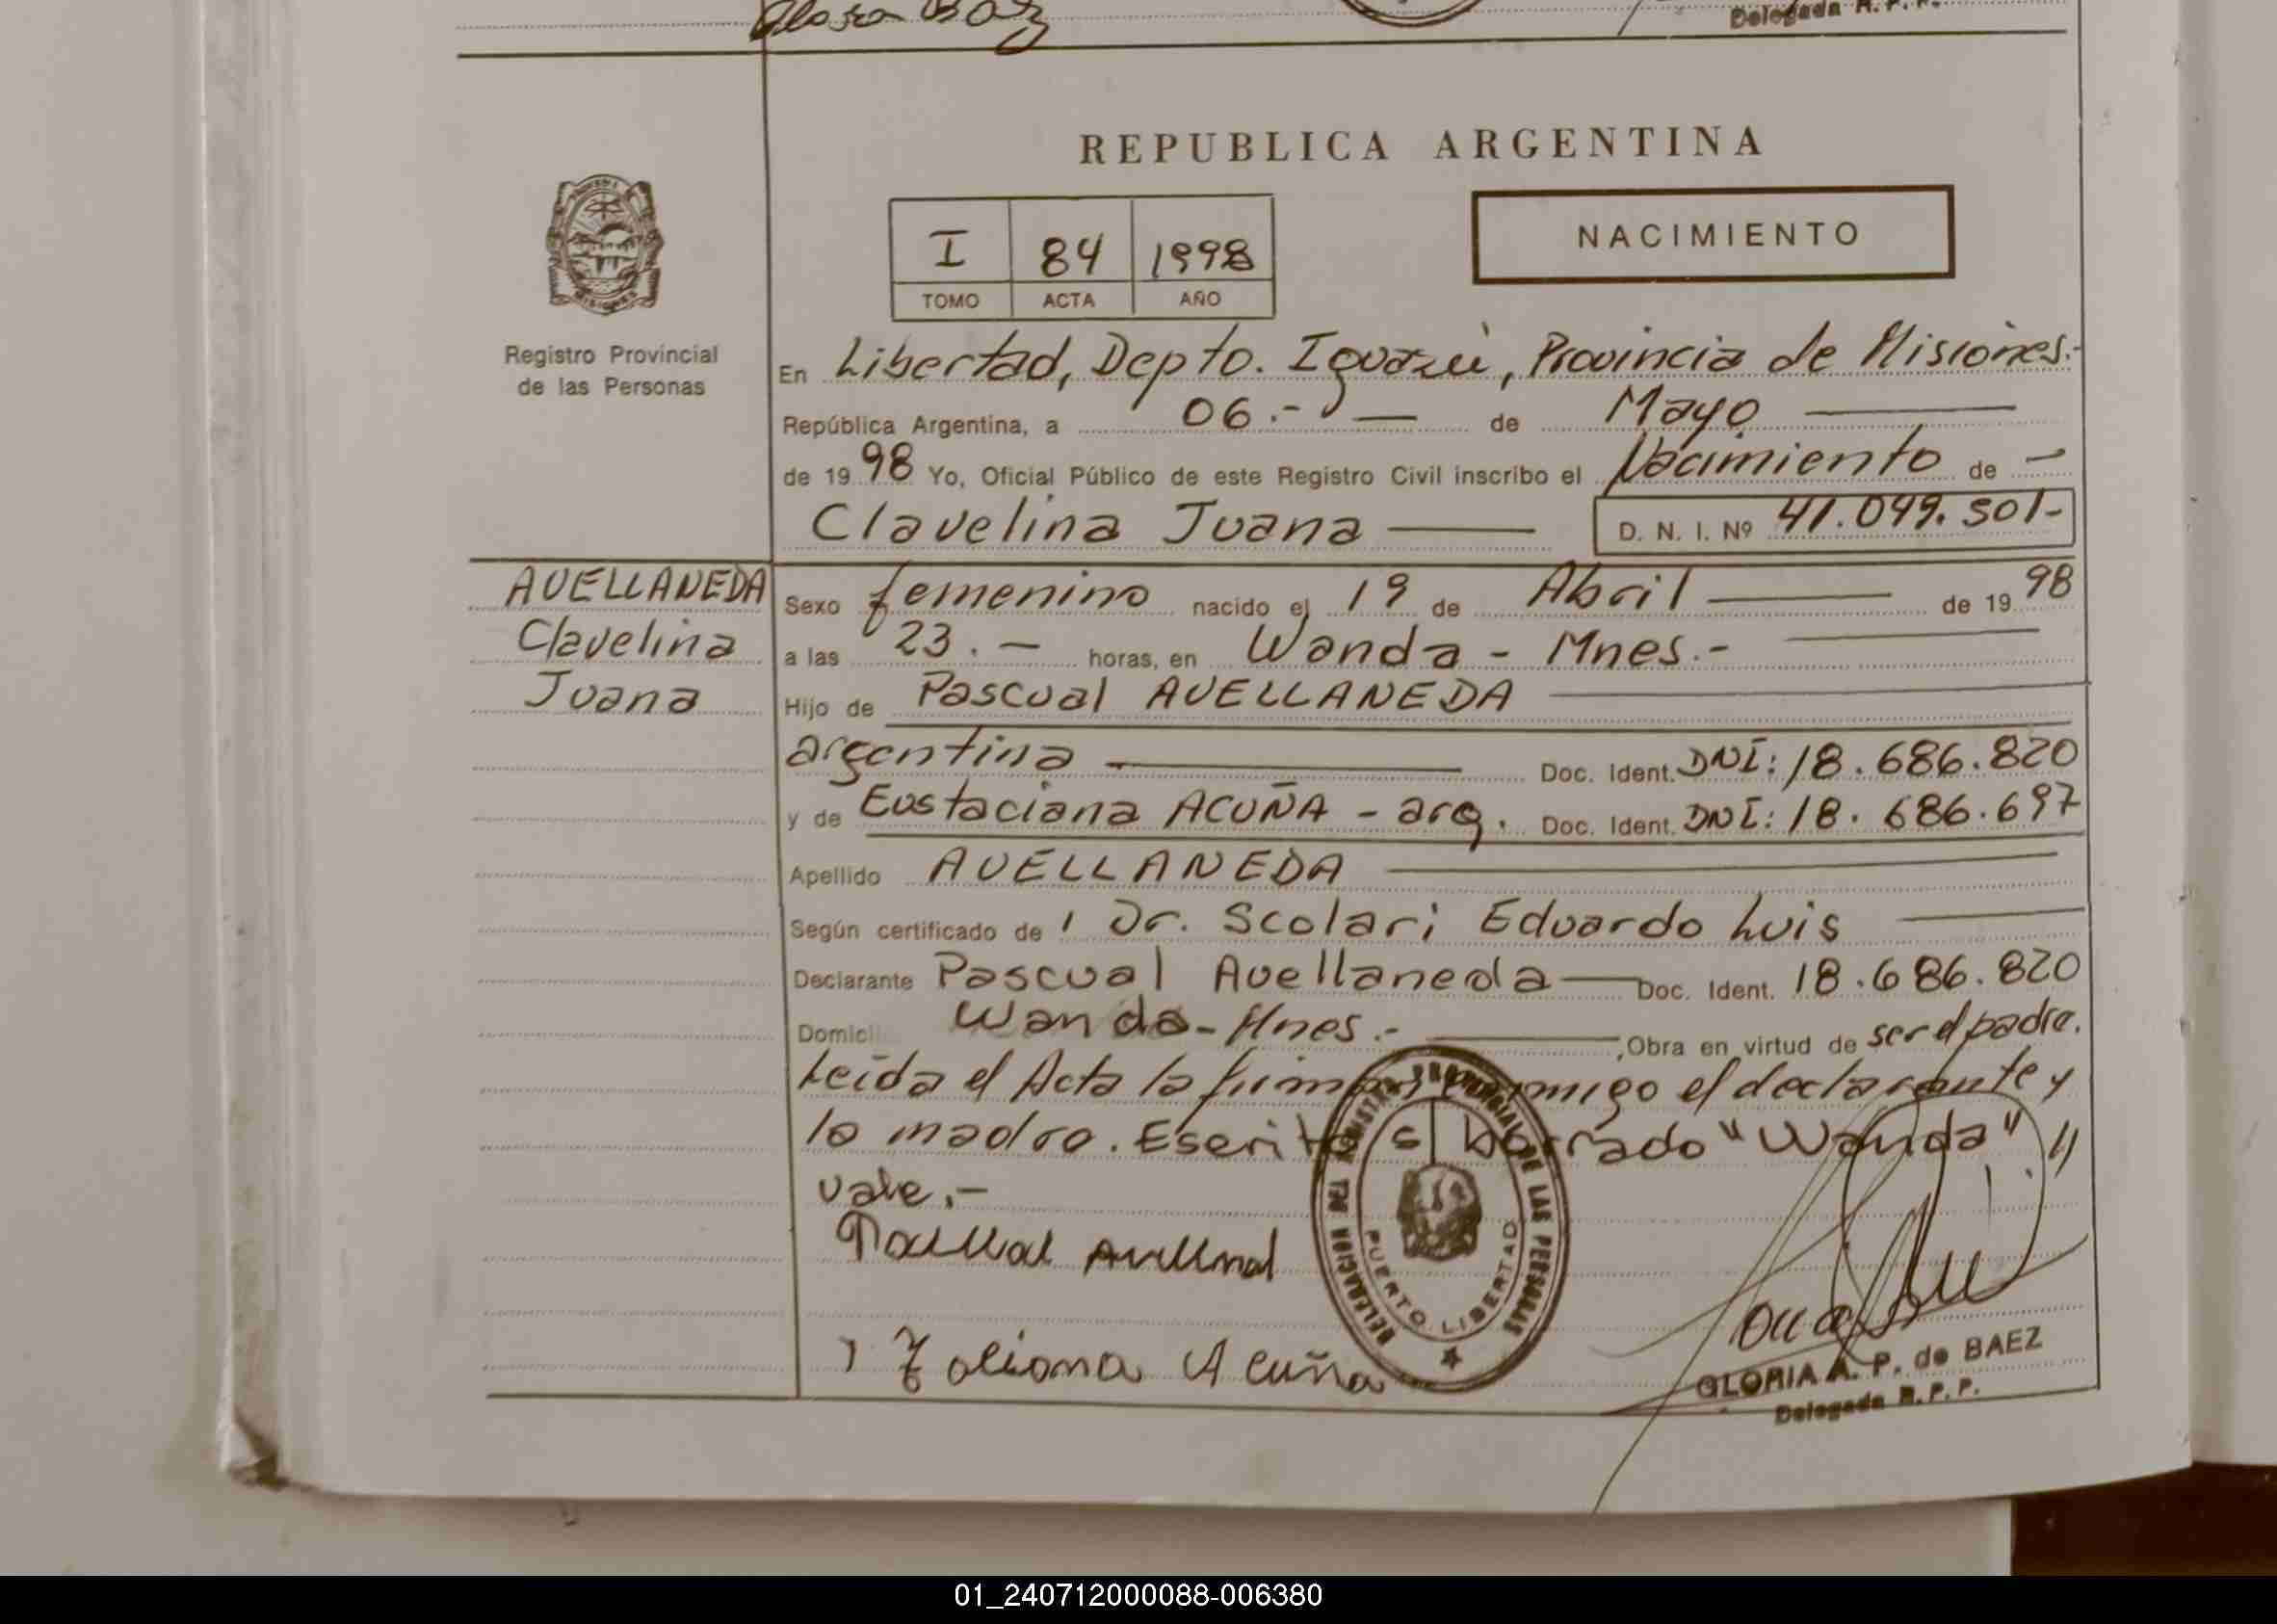 Delegada R. P. P.
REPUBLICA ARGENTINA
MISIONES
Registro Provincial
de las Personas
I 84 1998
TOMO ACTA AÑO
NACIMIENTO
En Libertad, Depto. Iguazú, Provincia de Misiones.-
República Argentina, a 06.- — de Mayo —
de 1998 Yo, Oficial Público de este Registro Civil inscribo el Nacimiento de —
Clavelina Juana — D. N. I. Nº 41.049.501-
AVELLANEDA
Clavelina
Juana
Sexo femenino nacido el 19 de Abril — de 1998
a las 23.— horas, en Wanda - Mnes.- —
Hijo de Pascual AVELLANEDA —
argentina — Doc. Ident. DNI: 18.686.820
y de Eustaciana ACUÑA - arg. Doc. Ident. DNI: 18.686.697
Apellido AVELLANEDA —
Según certificado de 1 Dr. Scolari Eduardo Luis —
Declarante Pascual Avellaneda — Doc. Ident. 18.686.820
Domici Wanda - Mnes.- — , Obra en virtud de ser el padre.
Leída el Acta la firman conmigo el declarante y
la madre. Escrito s/ borrado "Wanda" //
vale.-
Acuña
DELEGACION DEL REGISTRO PROVINCIAL DE LAS PERSONAS
PUERTO LIBERTAD
GLORIA A. P. de BAEZ
Delegada R. P. P.
01_240712000088-006380